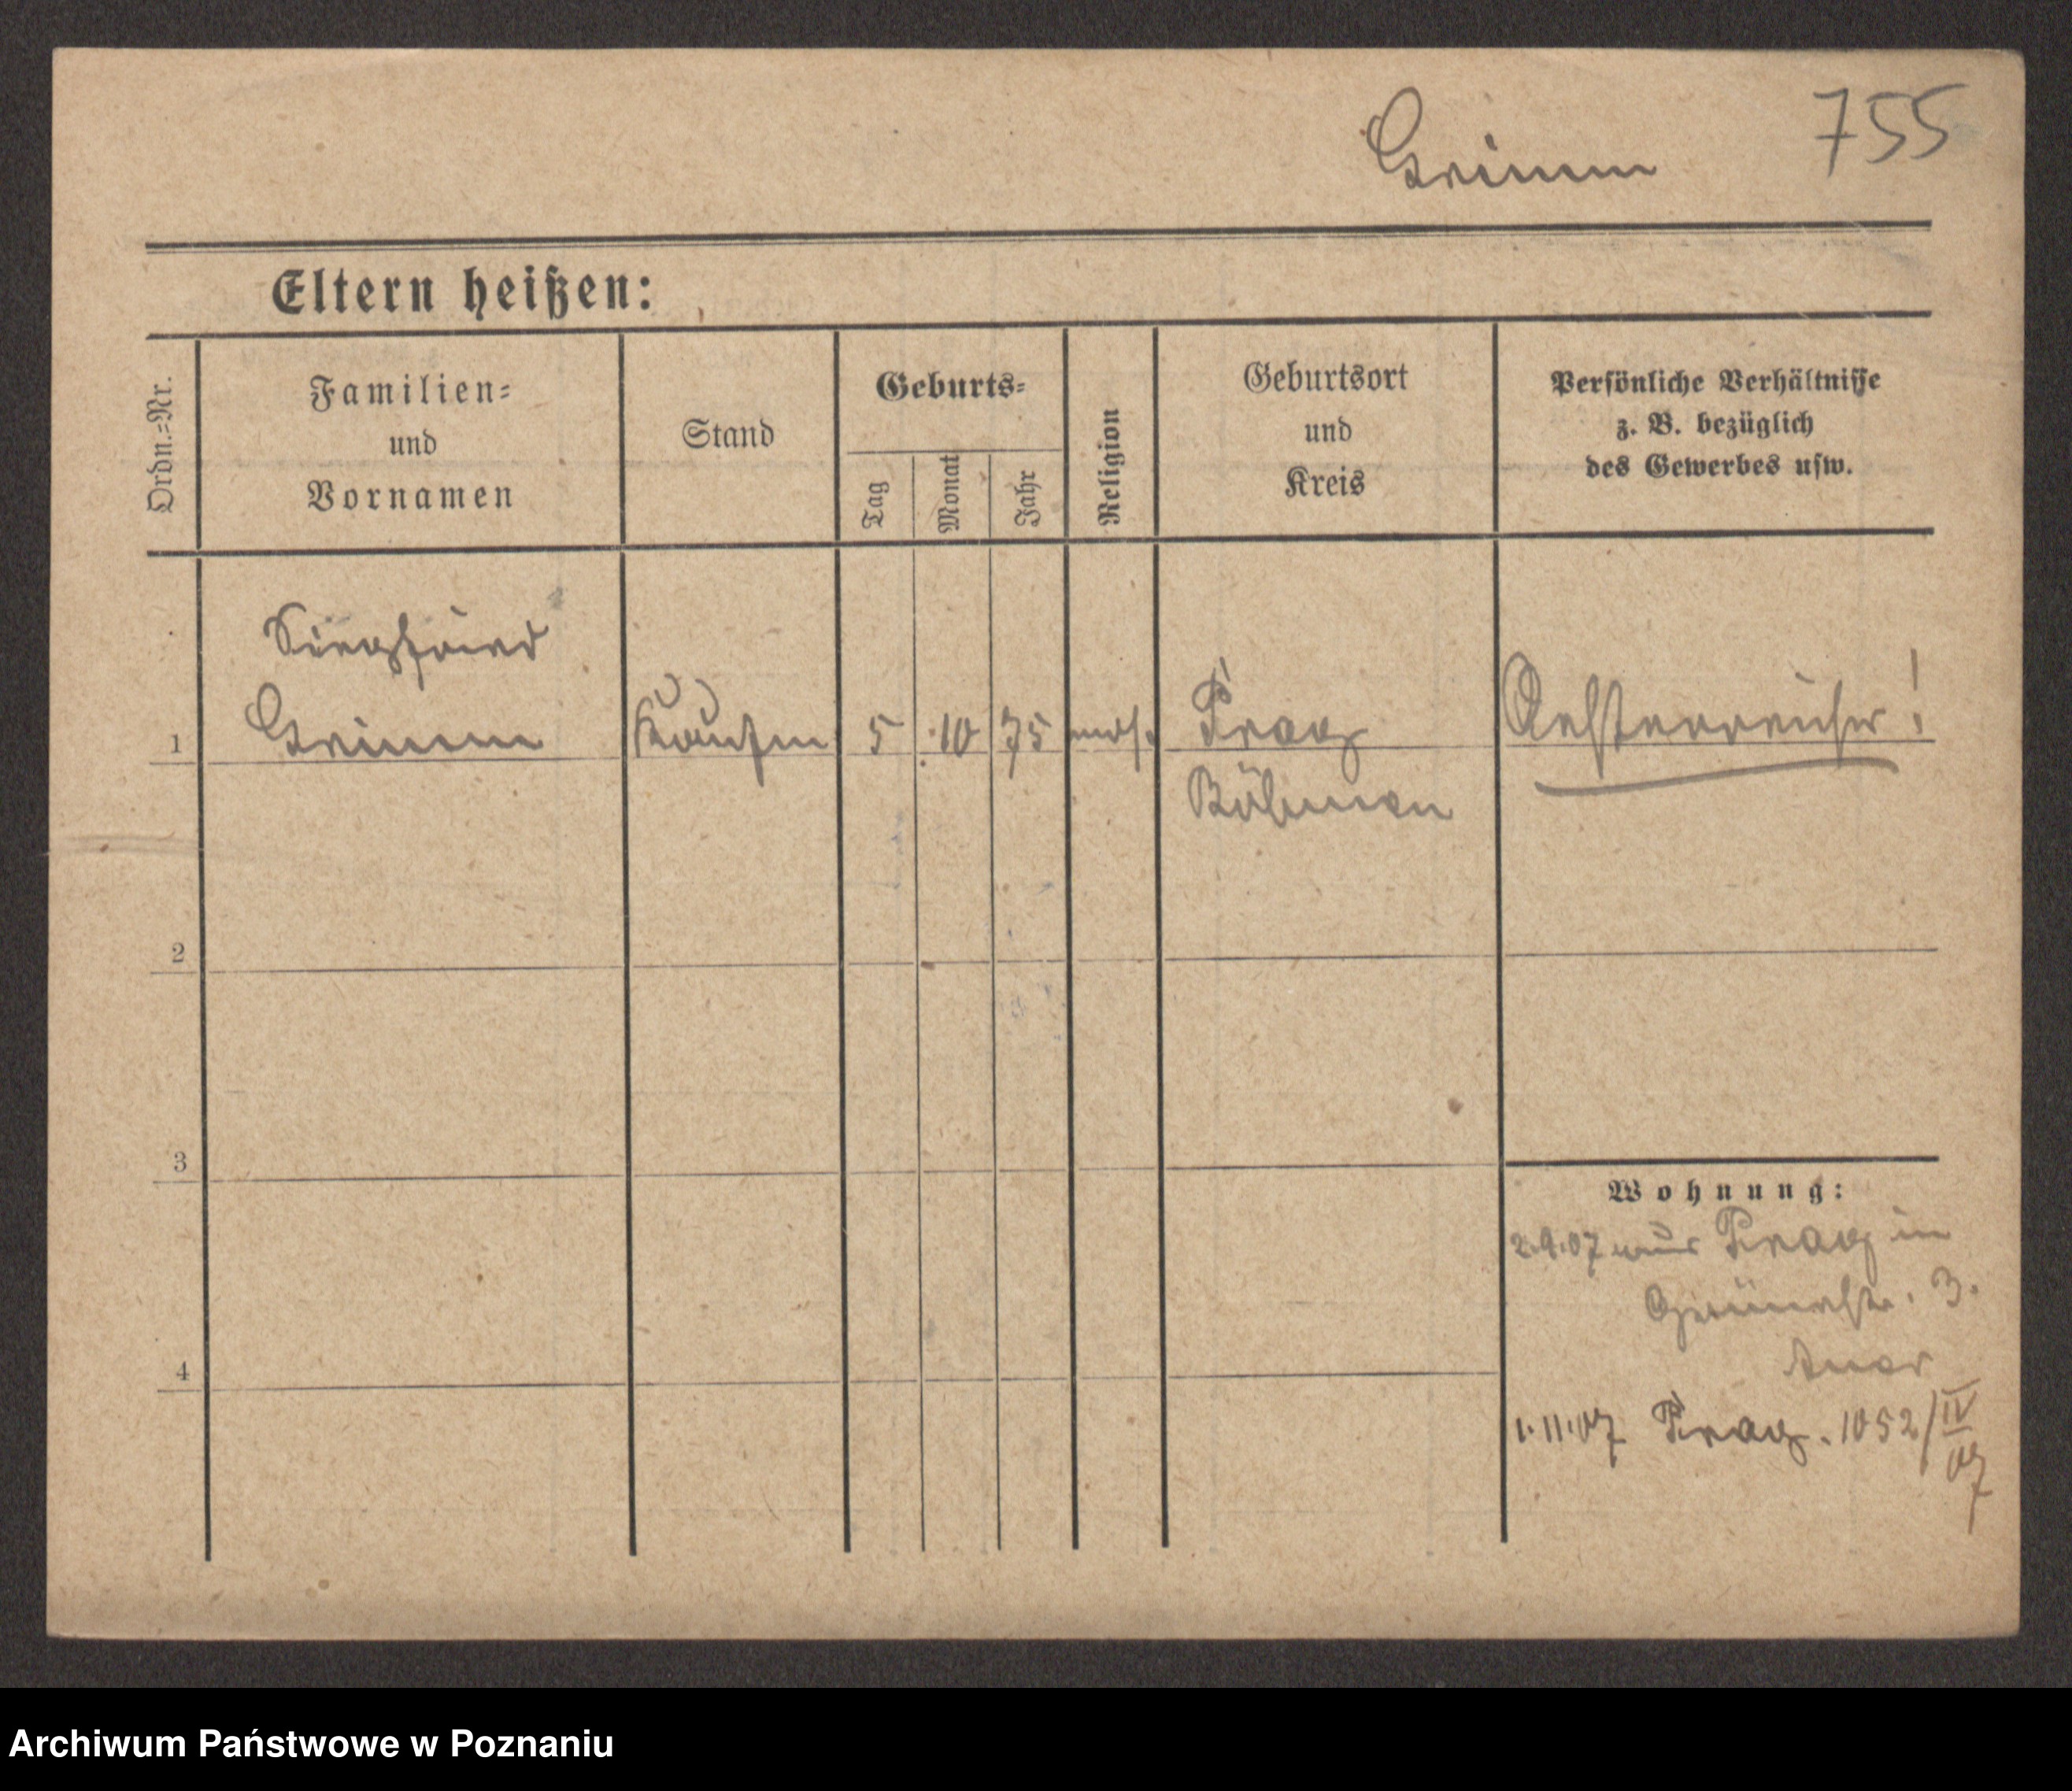 Grimm 755
Eltern heißen:
Ordn.-Nr.
Familien-
und
Vornamen
Stand
Geburts-
Tag
Monat
Jahr
Religion
Geburtsort
und
Kreis
Persönliche Verhältnisse
z. B. bezüglich
des Gewerbes usw.
Siegfried
1 Grimm Kaufm 5 10 75 mos. Prag Oesterreicher!
Böhmen
2
3
Wohnung:
2.9.07 aus Prag in
Grünestr. 3.
4
1.11.07 Prag. 1052/IV
07
Archiwum Państwowe w Poznaniu